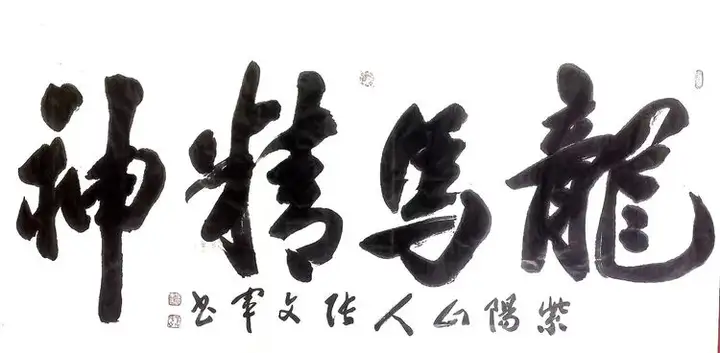 龍馬精神
紫陽山人张文軍书